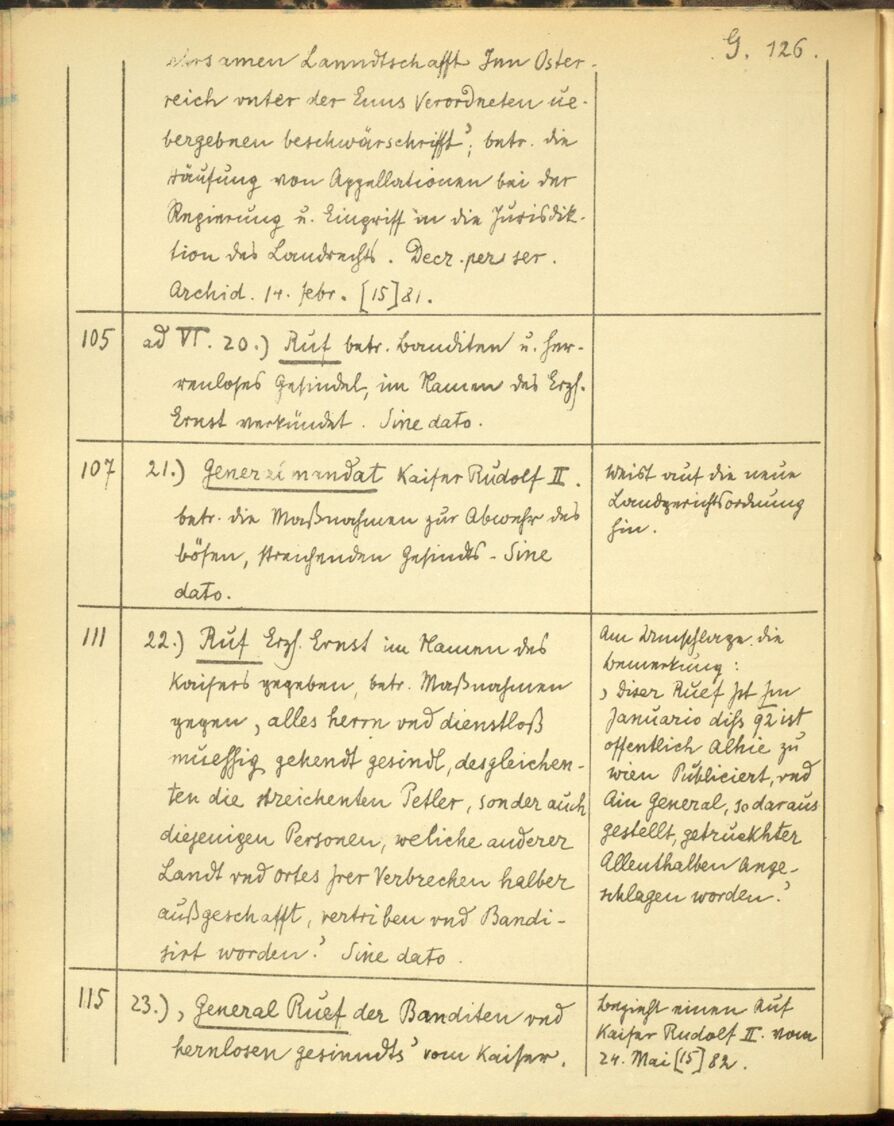 G. 126.
ehrsamen Lanndtschafft Inn Oster-
reich vnter der Enns Verordneten ue-
bergebnen beschwärschrifft'; betr. die
Häufung von Appellationen bei der
Regierung u. Eingriff in die Jurisdik-
tion des Landrechts. Decr. per ser.
Archid. 14. febr. [15]81.
105
ad VI. 20.) Ruf betr. Banditen u. her-
renloses Gesindel, im Namen des Erzh.
Ernst verkündet. Sine dato.
107
21.) Generalmandat Kaiser Rudolf II.
betr. die Maßnahmen zur Abwehr des
bösen, streichenden Gesindts - Sine
dato.
Weist auf die neue
Landgerichtsordnung
hin.
111
22.) Ruf Erzh. Ernst im Namen des
Kaisers gegeben, betr. Maßnahmen
gegen, alles herrn vnd dienstloß
muessig gehendt gesindl, desgleichen-
ten die streichenten Petler, sonder auch
diejenigen Personen, weliche anderer
Landt vnd ortes Jrer Verbrechen halber
außgeschafft, vertriben vnd Bandi-
sirt worden.' Sine dato.
Am Umschlage die
Bemerkung:
, Diser Ruef Jst Jm
Januario diss 92 ist
offentlich Alhie zu
wien Publiciert, vnd
Ain General, so daraus
gestellt, getruckhter
Allenthalben Ange-
schlagen worden.'
115
23.) , General Ruef der Banditen vnd
hernlosen gesinndts' vom Kaiser.
Bezieht einen Ruf
Kaiser Rudolf II. vom
24. Mai [15]82.